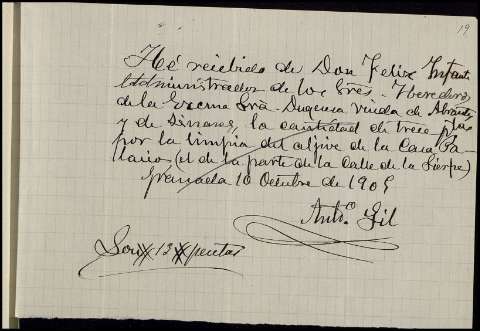 19
Hé recibido de Don Felix Infante
Administrador de los Sres. Herederos
de la Excma Sra. Duquesa viuda de Abrantes
y de Linares, la cantidad de trece ptas
por la limpia del aljive de la Casa Pa-
lacio (el de la parte de la Calle de la Sierpe)
Granada 10 Octubre de 1905
Antº. Gil
Son # 13 # pesetas